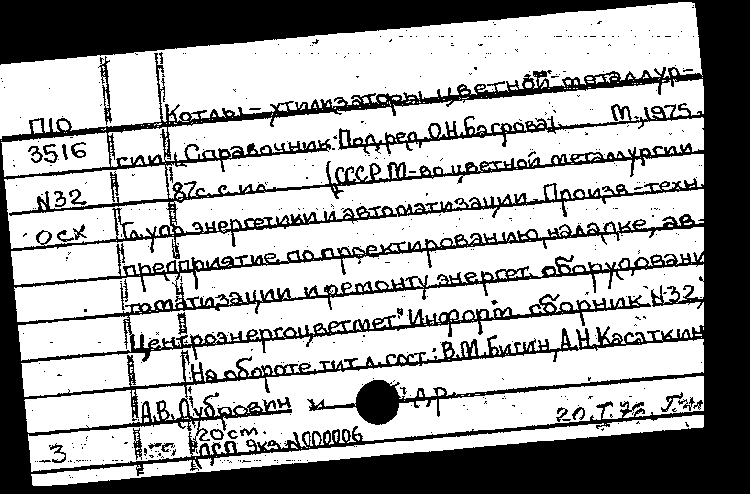 Котлы-утилизаторы цветной металлур-
П10
3516 гии. (Справочник. Под ред. О.Н. Багрова). М., 1975.
N32 87с. с ил. (СССР. М-во цветной металлургии.
осх Гл. упр. энергетики и автоматизации. Произв.-техн.
предприятие по проектированию, наладке, ав-
томатизации и ремонту энергет. оборудовани
"Центроэнергоцветмет." Информ. сборник N32,
На обороте тит. л. сост.: В.М. Бигин, А.Н. Касаткин
А.В. Дубровин и др.
20 ст.
3 ДСП Экз. N000006